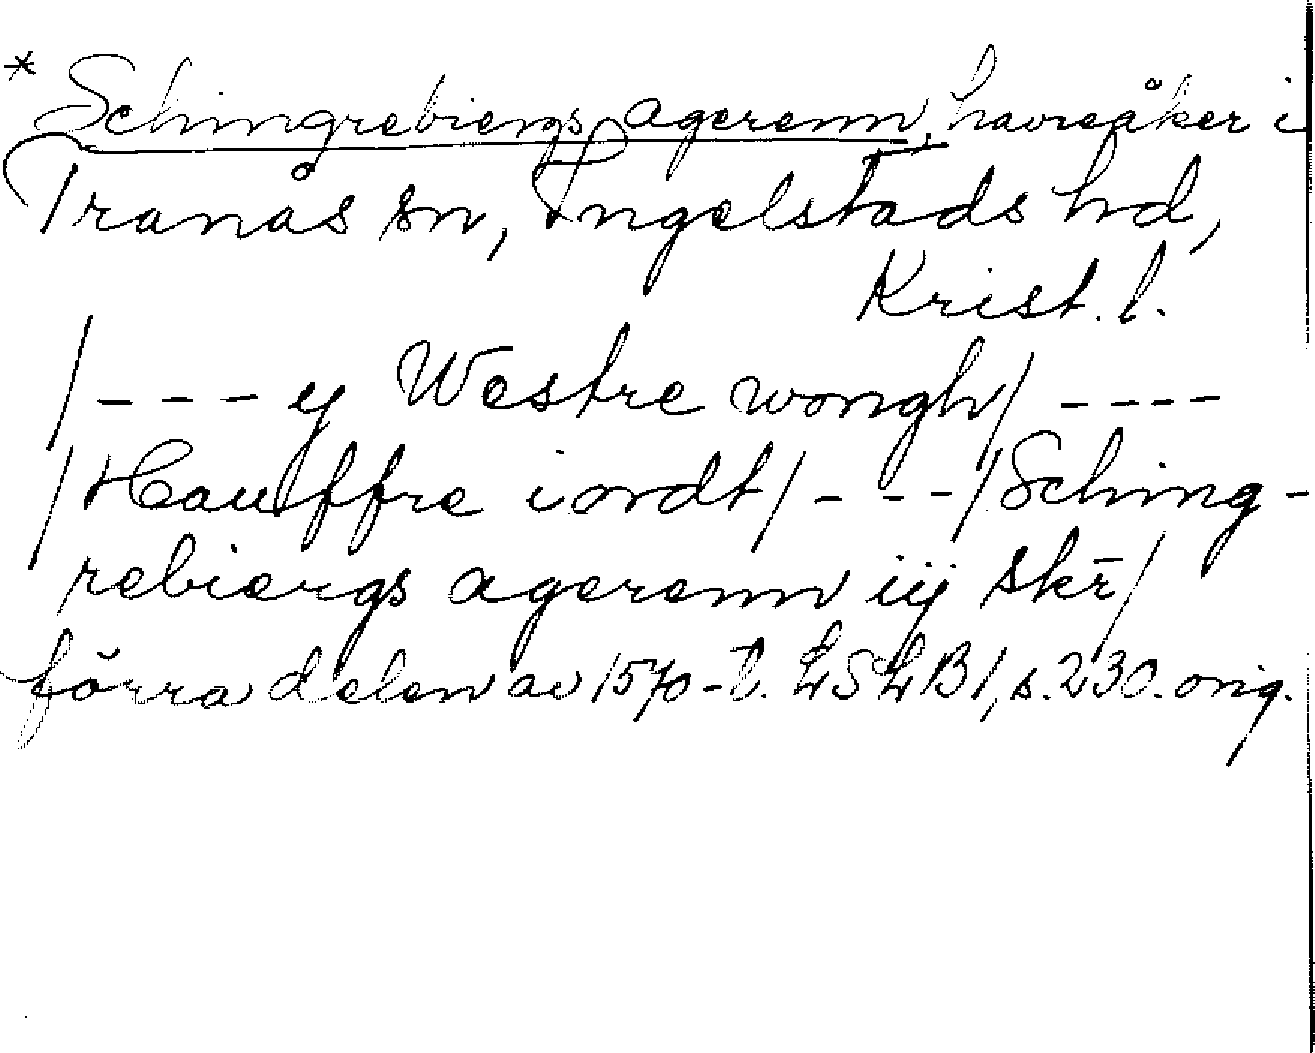 * Schingrebiergs agerenn, havreåker i
Tranås sn, Ingelstads hd,
Krist. l.
/--- y Westre wongh/ ----
/Hauffre iordt/ - -- /Sching-
rebiergs agerenn iij skr̄/
förra delen av 1570-t. LSLB1, s. 230. orig.